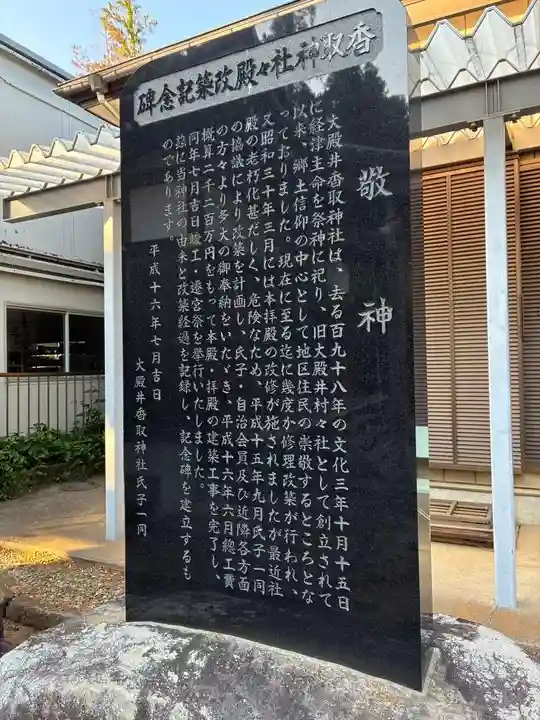 香取神社々殿改築記念碑
敬神
大殿井香取神社は、去る百九十八年の文化三年十月十五日
に経津主命を祭神に祀り、旧大殿井村々社として創立されて
以来、郷土信仰の中心として地区住民の崇敬するところとな
っておりました。現在に至る迄に幾度か修理改築が行われ、
又昭和三十年三月には本拝殿の改修が施されましたが最近社
殿の老朽化甚だしく、危険なため、平成十五年九月氏子一同
の協議により改築を計画し、氏子・自治会員及び近隣各方面
の方々より多大の御奉納をいたゞき、平成十六年六月總工費
概算二千二百万円をもって本殿・拝殿の建築工事を完了し、
同年七月吉日竣工・遷宮祭を挙行いたしました。
茲に当神社の由来と改築経過を記録し、記念碑を建立するも
のであります。
平成十六年七月吉日
大殿井香取神社氏子一同